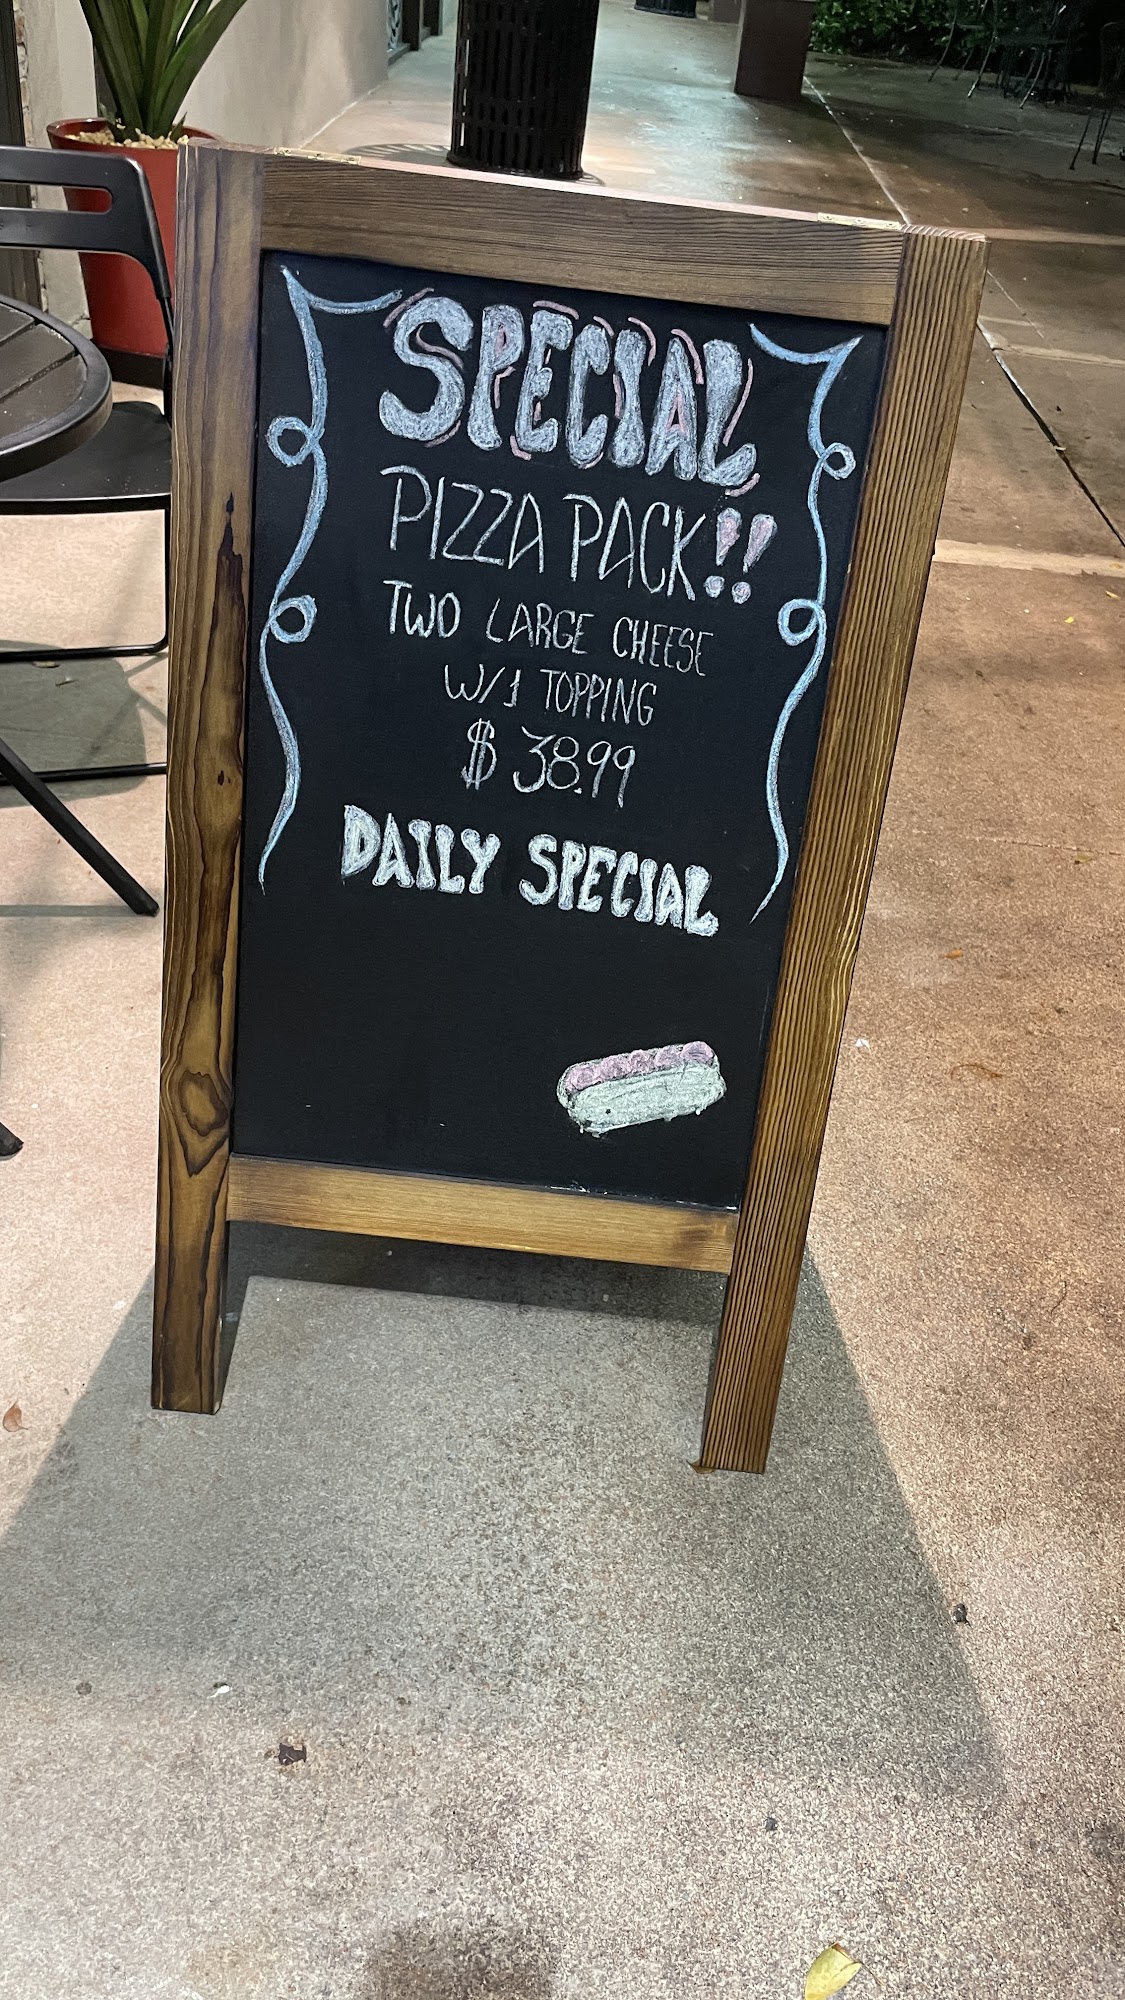 SPECIAL
PIZZA PACK!!
TWO LARGE CHEESE
W/1 TOPPING
$ 38.99
DAILY SPECIAL